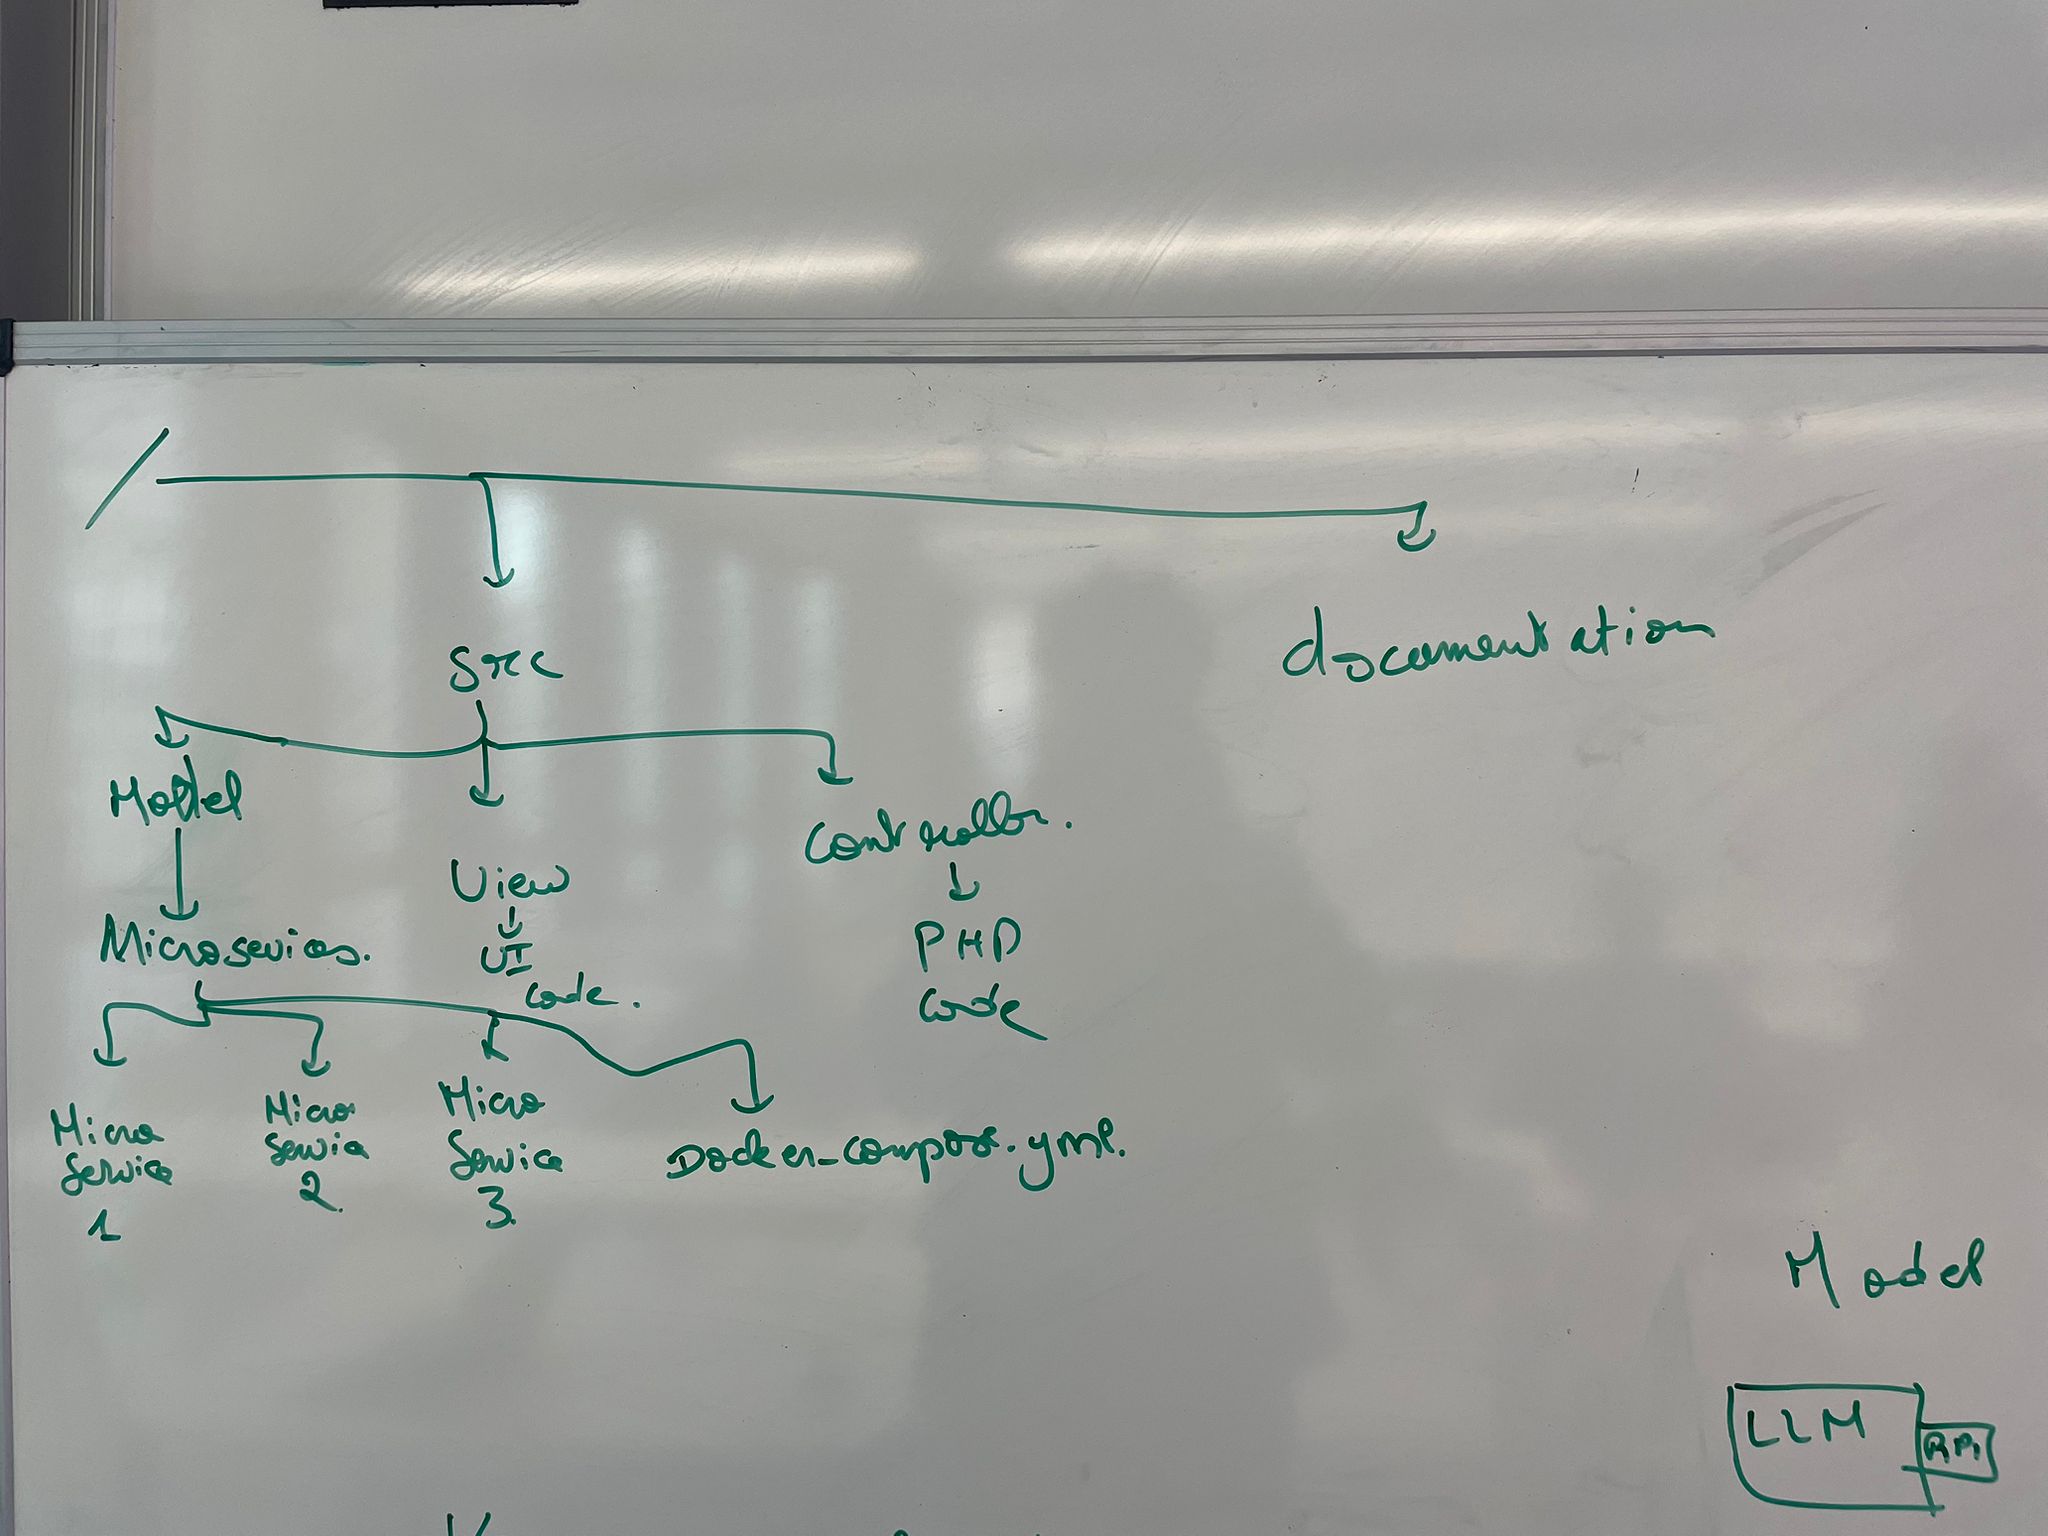 /
src
documentation
Model
View
Controller.
Microsevices.
UI
code.
PHP
code
Micro
Service
1
Micro
Servic
2.
Micro
Service
3.
Docker_compose.yml.
Model
LLM
API